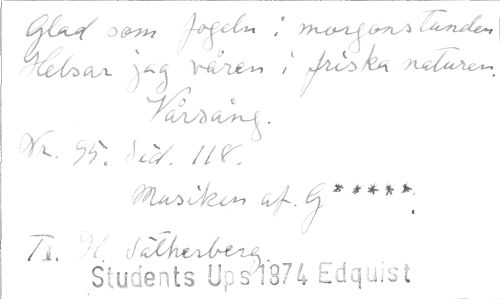 Glad som fogeln i morgonstunden
Helsar jag våren i friska naturen.
Vårsång.
Nr. 95. Sid. 118.
Musiken af G*****.
Tx. H. Sätherberg.
Students Ups 1874 Edquist